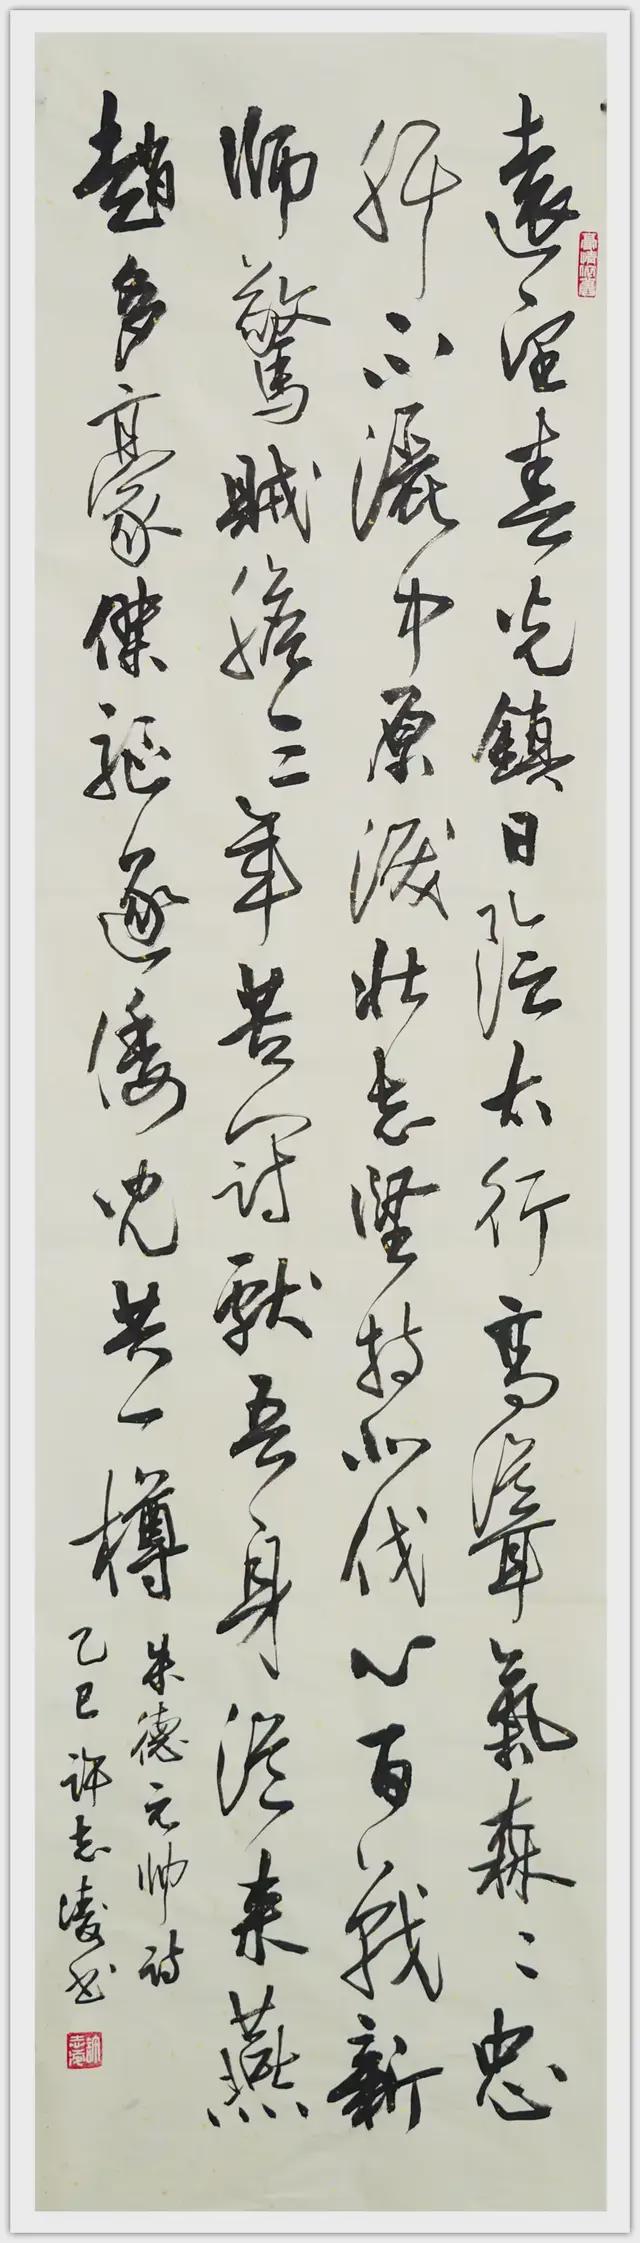 遠望春光鎮日陰太行高聳氣森〻忠
肝不灑中原淚壯志堅持北伐心百戰新
師驚賊膽三年苦鬥獻吾身從來燕
趙多豪傑驅逐倭兒共一樽
朱德元帥詩
乙巳許志凌書